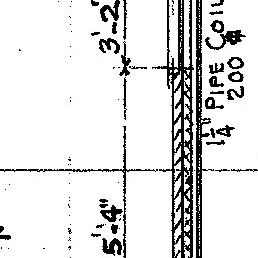 3'-2"
5'-4"
1 1/4" PIPE COIL
200 #